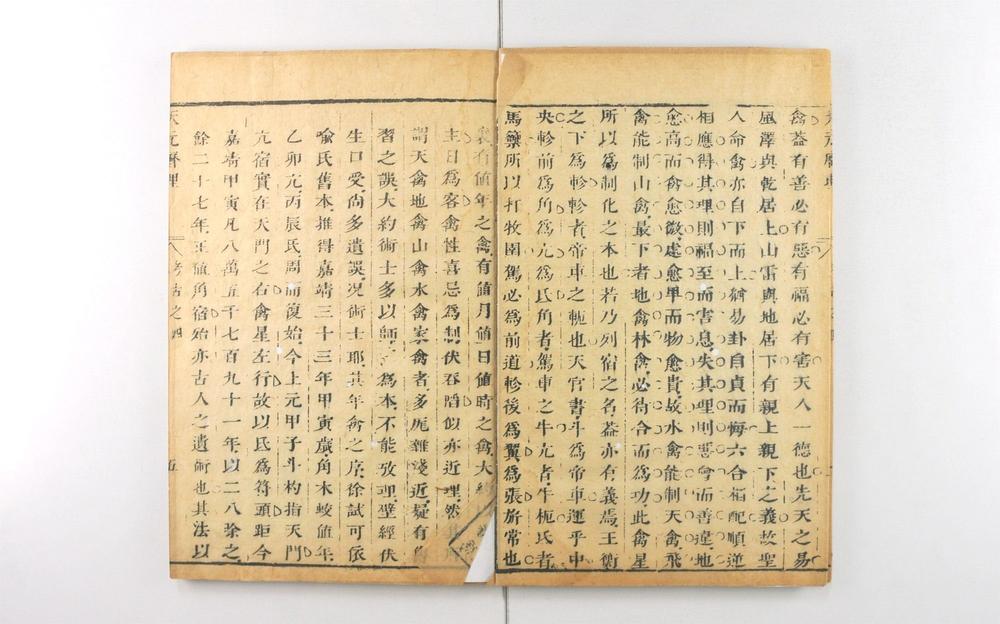 禽葢有善必有惡有福必有害天人一德也先天之易
風澤與乾居上山雷與地居下有親上親下之義故聖
人命禽亦自下而上猶易卦自貞而悔六合相配順逆
相應得其理則福至而害息失其理則惡會而善違地
愈高而禽愈微處愈𤰞而物愈貴故水禽能制天禽飛
禽能制山禽最下者地禽林禽必待合而為功此禽星
所以為制化之本也若乃列宿之名葢亦有義焉王衡
之下為軫軫者帝車之軛也天官書斗為帝車運乎中
央軫前為角為亢為氐角者駕車之牛亢者牛柂氐者
馬籞所以打牧園駕必為前道軫後為翼為張旂常也
天元曆理
考古之四
五
衰有値年之禽有値月値日値時之禽大約
主日為客禽性喜忌為制伏吞䧟似亦近理然
謂天禽地禽山禽水禽家禽者多厖雜淺近疑有
習之誤大約術士多以師為本不能攷理壁經伏
生口受尚多遺誤況術士耶其年禽之序徐試可依
喻氏舊本推得嘉靖三十三年甲寅歲角木蛟値年
乙卯亢丙辰氐周而復始今上元甲子斗杓指天門
亢宿實在天門之右禽星左行故以氐為符頭距今
嘉靖甲寅凡八萬五千七百九十一年以二八除之
餘二十七年正値角宿殆亦古人之遺術也其法以